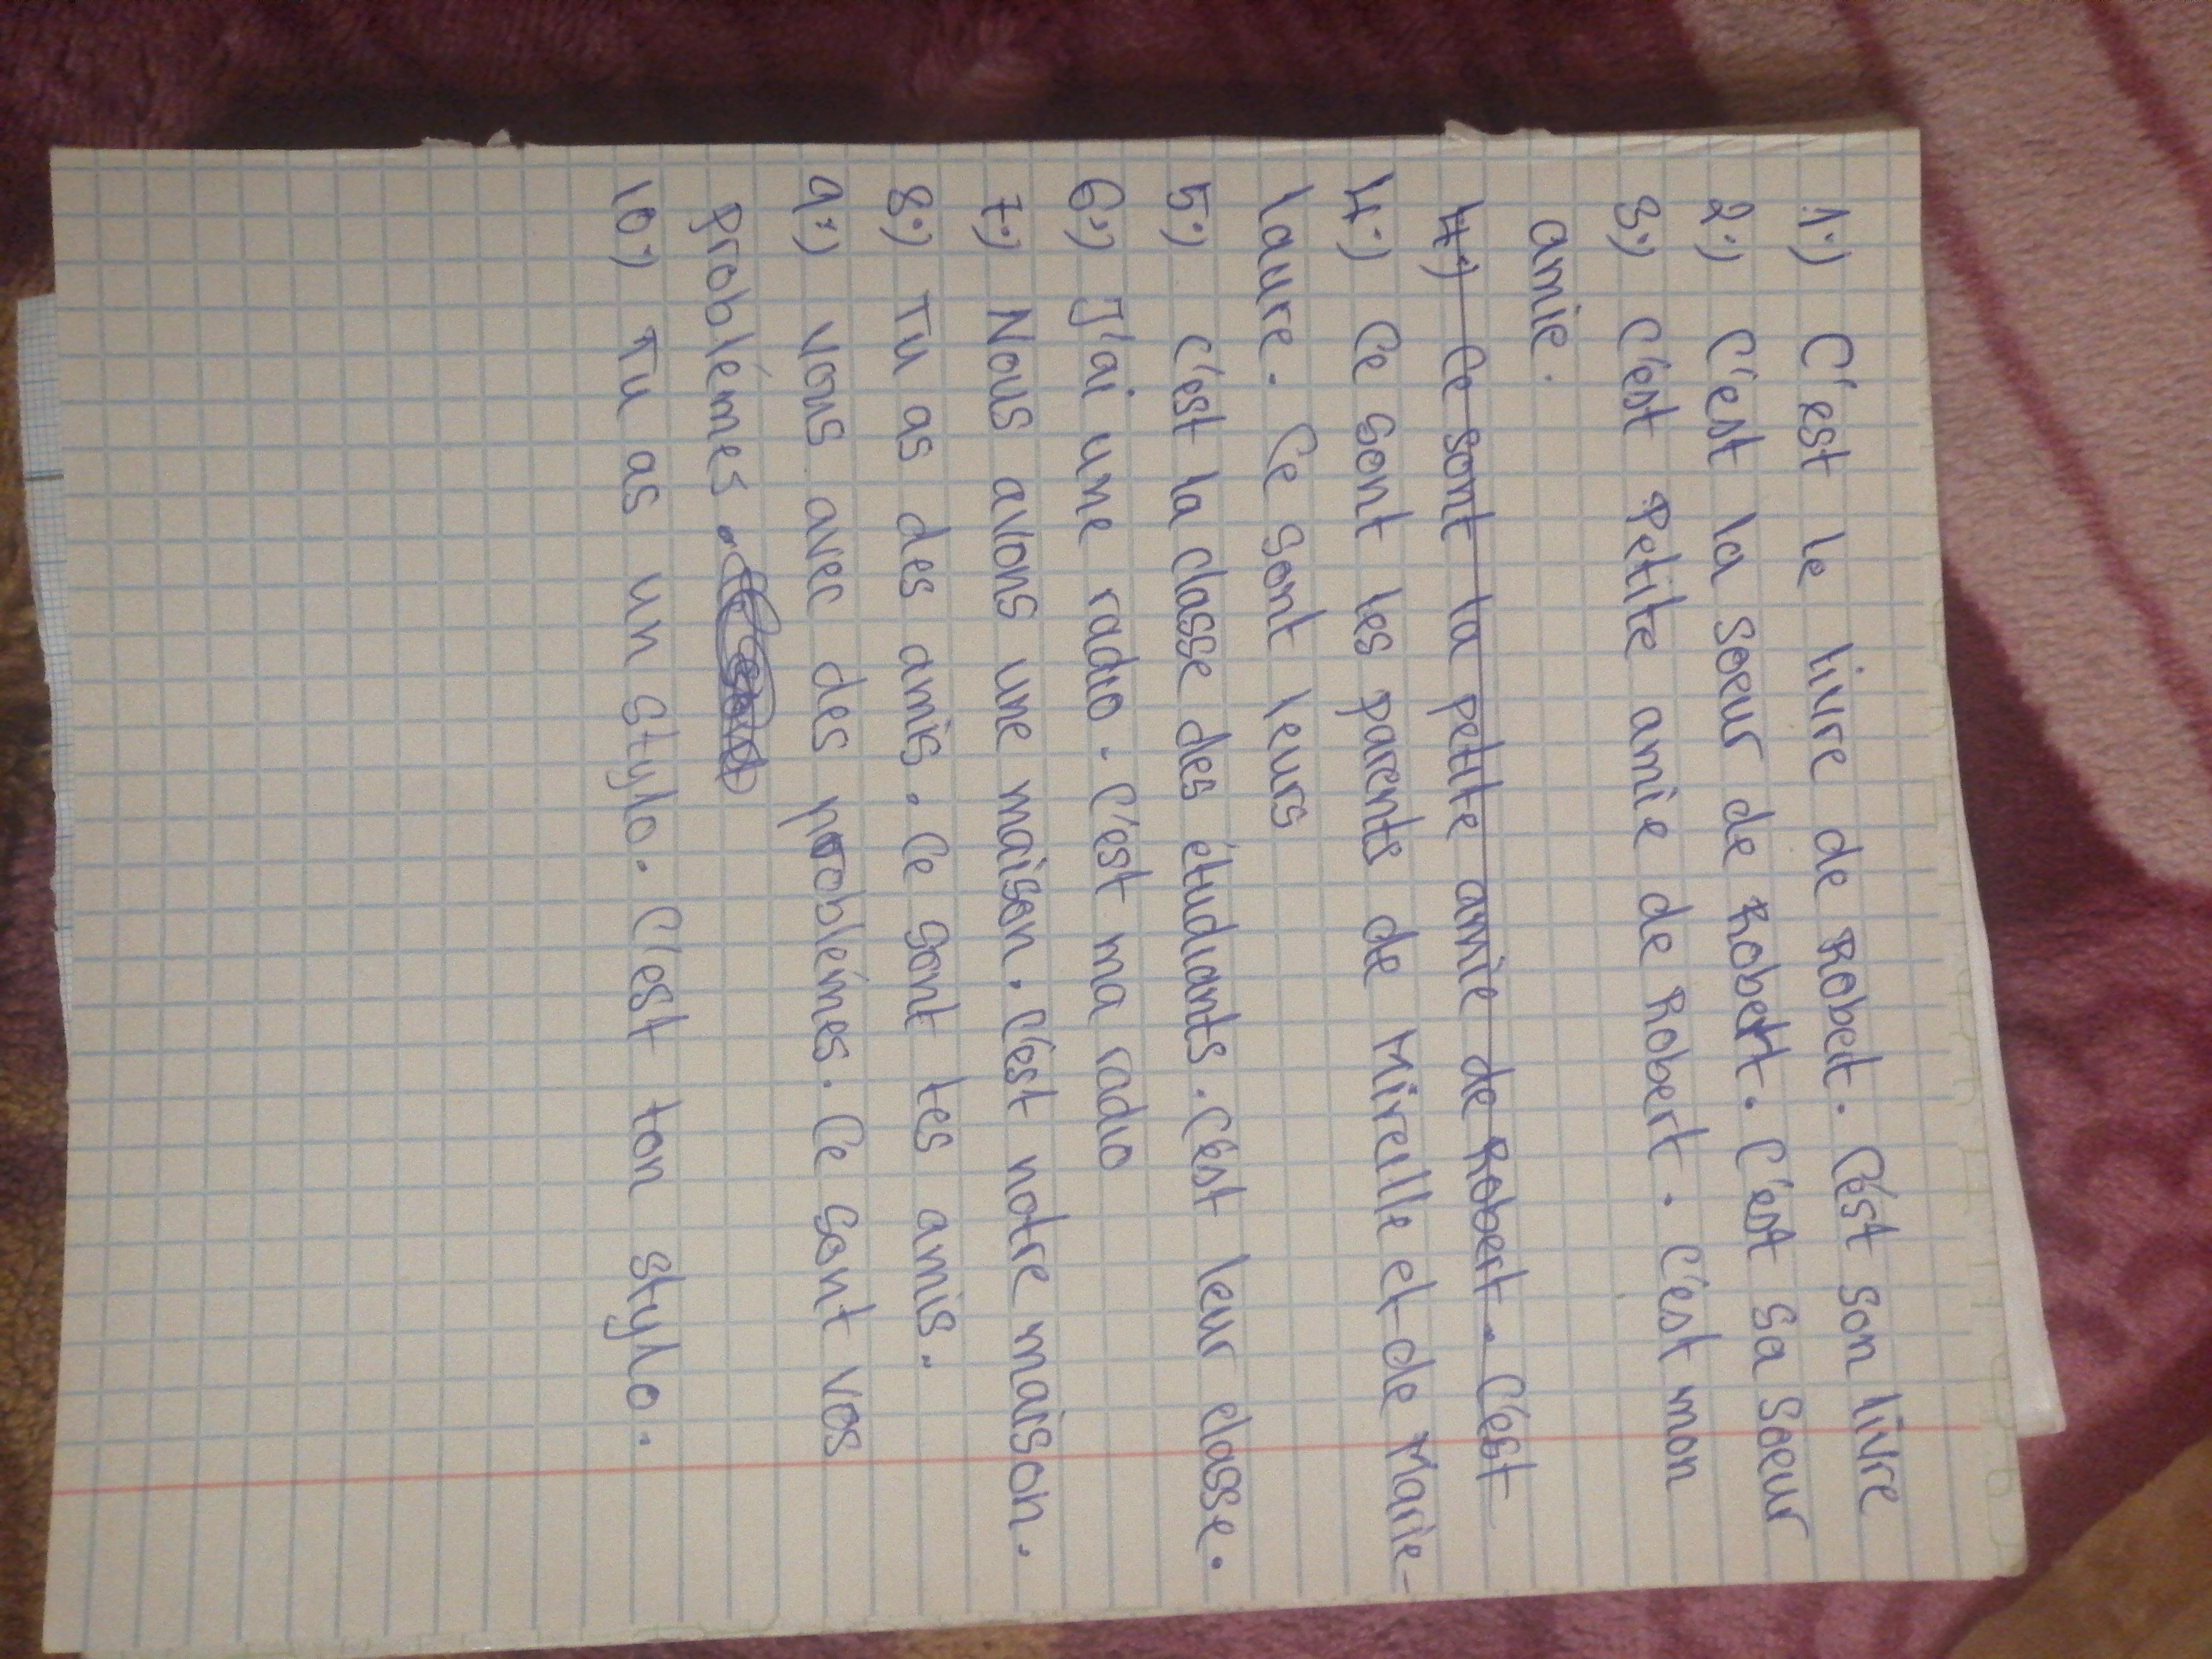 1°) C'est le livre de Robert. C'est son livre
2°) C'est la soeur de Robert. C'est sa soeur
3°) C'est Petite amie de Robert. C'est mon
amie.
4°) Ce sont la petite amie de Robert. C'est
4°) Ce sont les parents de Mireille et de Marie-
laure. Ce sont leurs
5°) C'est la classe des étudiants. C'est leur classe.
6°) J'ai une radio. C'est ma radio
7°) Nous avons une maison. C'est notre maison.
8°) Tu as des amis. Ce sont tes amis.
9°) Vous avec des problémes. Ce sont vos
problémes.
10°) Tu as un stylo. C'est ton stylo.